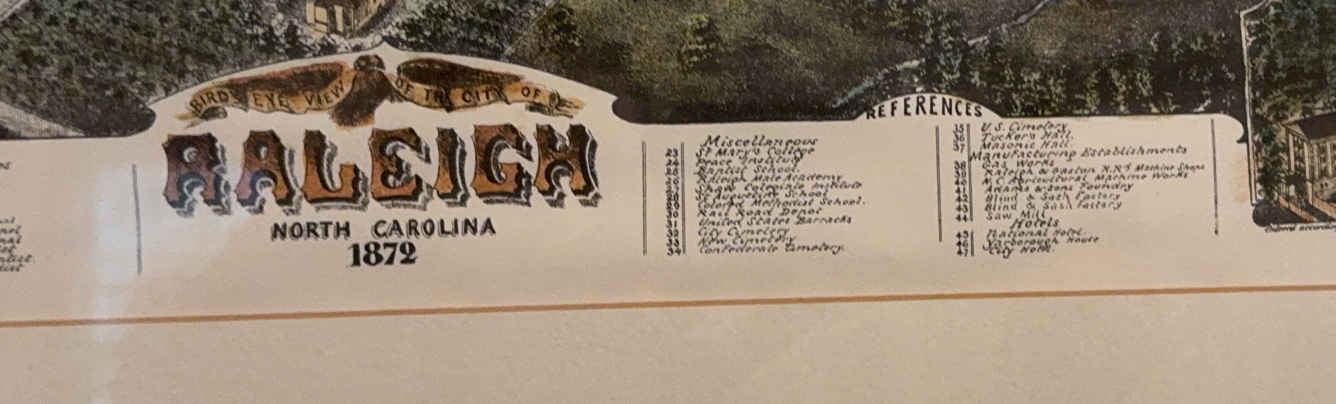 BIRD'S EYE VIEW OF THE CITY OF
RALEIGH
NORTH CAROLINA
1872
REFERENCES
Miscellaneous
23 St Mary's College
24 Peace Institute
25 Baptist School.
26 Raleigh Male Academy
Shaw Collegiate Institute
St Augustine School
29 Colored Methodist School.
30 Rail Road Depot
31 United States Barracks
32 City Cemetery
33 New Cemetery
34 Confederate Cemetery.
35 U.S. Cemetery
36 Tucker's Hall.
37 Masonic Hall.
Manufacturing Establishments
38 Gas Works
39 Raleigh & Gaston R.R's Machine Shops
40 N.C. Agricultural Machine Works
41 Adams & Sons Foundry
42 Blind & Sash Factory
43 Blind & Sash Factory
44 Saw Mill
Hotels
45 National Hotel.
46 Yarborough House
47 City Hotel.